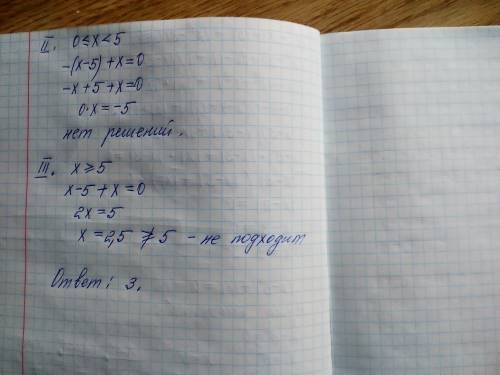 II. 0≤x<5
-(x-5)+x=0
-x+5+x=0
0·x=-5
нет решений.
III. x≥5
x-5+x=0
2x=5
x=2,5 ≱ 5 - не подходит
Ответ: 3.